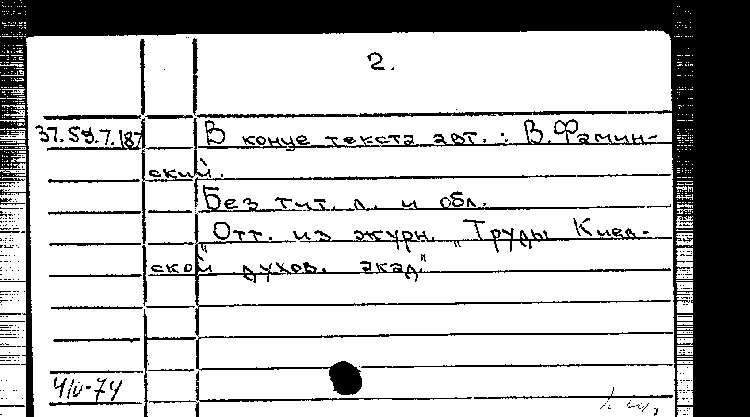 2.
37.59.7.187 В конце текста авт.: В. Фамин-
ский.
Без тит. л. и обл.
Отт. из журн. „Труды Киев-
ской духов. акад“